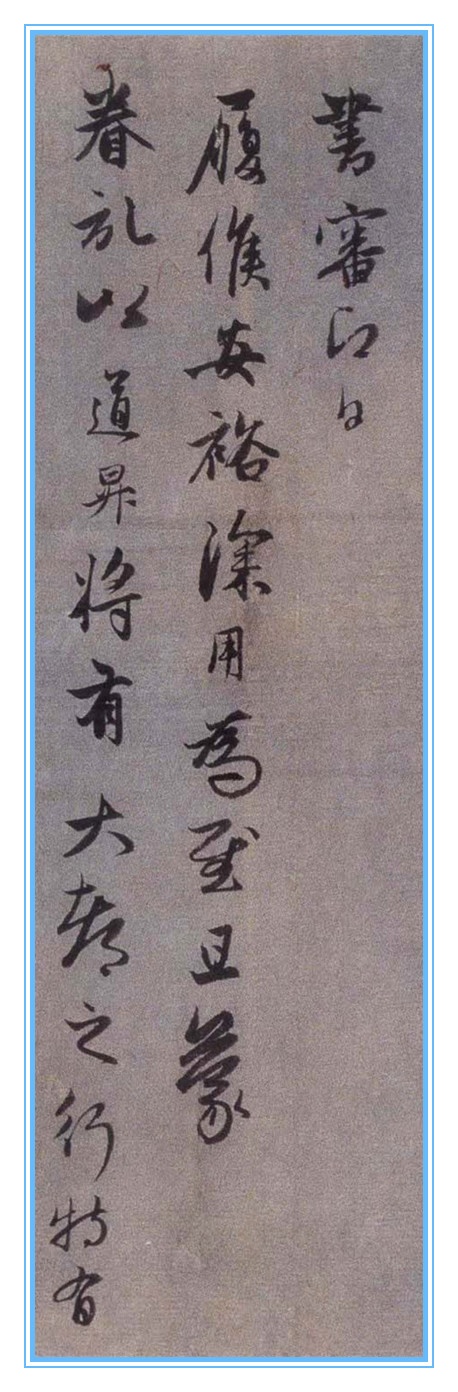 書審即日
履候安裕深用為慰且蒙
眷記以道昇將有大都之行特有